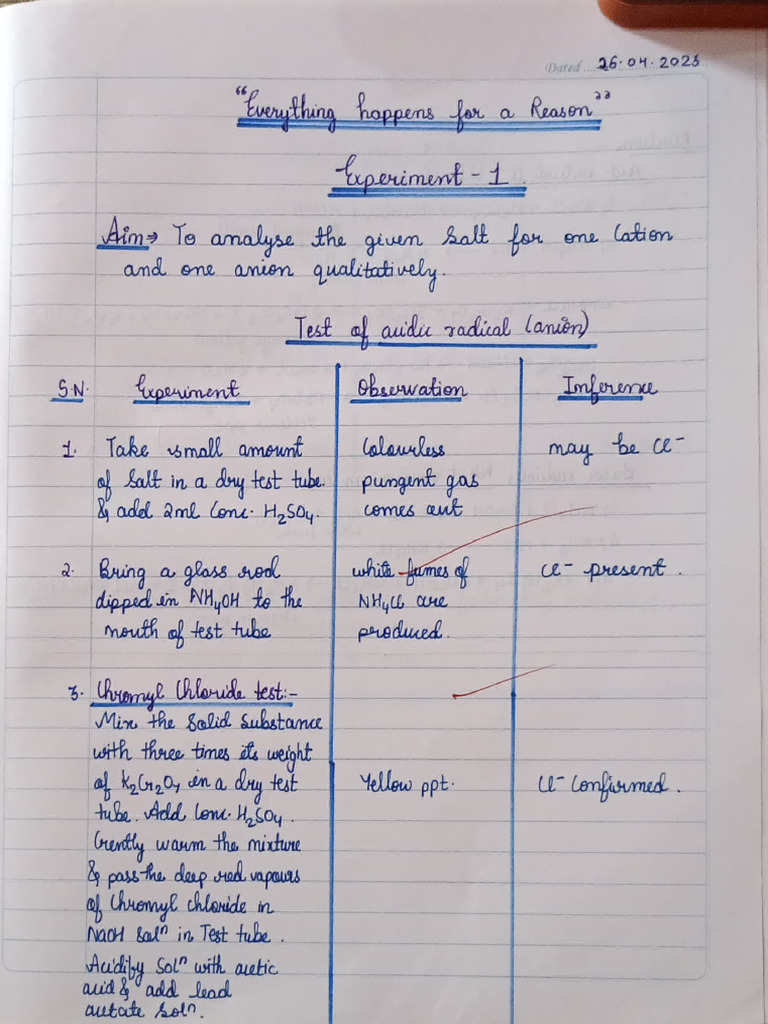 Dated 26.04.2025
"Everything happens for a Reason"
Experiment - 1
Aim⇒ To analyse the given Salt for one Cation
and one anion qualitatively.
Test of acidic radical (anion)
S.N. Experiment Observation Inference
1. Take small amount Colourless may be Cl⁻
of Salt in a dry test tube. pungent gas
& add 2ml Conc. H₂SO₄. comes out
2. Bring a glass rod white fumes of Cl⁻ present.
dipped in NH₄OH to the NH₄Cl are
mouth of test tube produced.
3. Chromyl Chloride test:-
Mix the Solid Substance
with three times its weight
of K₂Cr₂O₇ in a dry test Yellow ppt. Cl⁻ Confirmed.
tube. Add Conc. H₂SO₄.
Gently warm the mixture
& pass the deep red vapours
of Chromyl chloride in
NaOH Solⁿ in Test tube.
Acidify Solⁿ with acetic
acid & add lead
acetate Solⁿ.